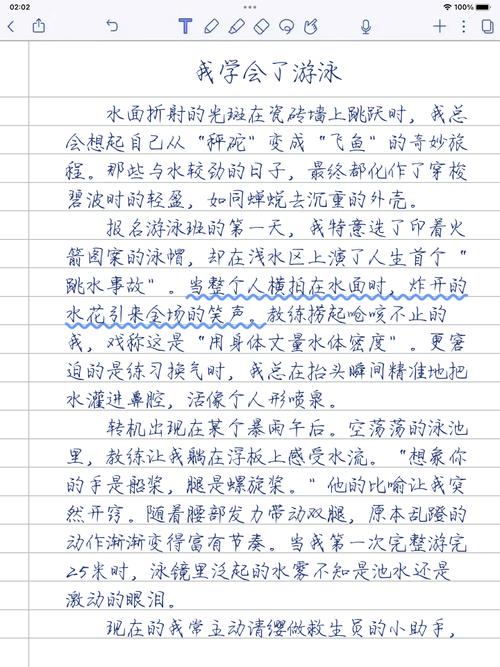 02:02
100%
T
我学会了游泳
水面折射的光斑在瓷砖墙上跳跃时，我总
会想起自己从“秤砣”变成“飞鱼”的奇妙旅
程。那些与水较劲的日子，最终都化作了穿梭
碧波时的轻盈，如同蝉蜕去沉重的外壳。
报名游泳班的第一天，我特意选了印着火
箭图案的泳帽，却在浅水区上演了人生首个“
跳水事故”。当整个人横拍在水面时，炸开的
水花引来全场的笑声。教练捞起呛咳不止的
我，戏称这是“用身体丈量水体密度”。更窘
迫的是练习换气时，我总在抬头瞬间精准地把
水灌进鼻腔，活像个人形喷泉。
转机出现在某个暴雨午后。空荡荡的泳池
里，教练让我躺在浮板上感受水流。“想象你
的手是船桨，腿是螺旋桨。”他的比喻让我突
然开窍。随着腰部发力带动双腿，原本乱蹬的
动作渐渐变得富有节奏。当我第一次完整游完
25米时，泳镜里泛起的水雾不知是池水还是
激动的眼泪。
现在的我常主动请缨做救生员的小助手，